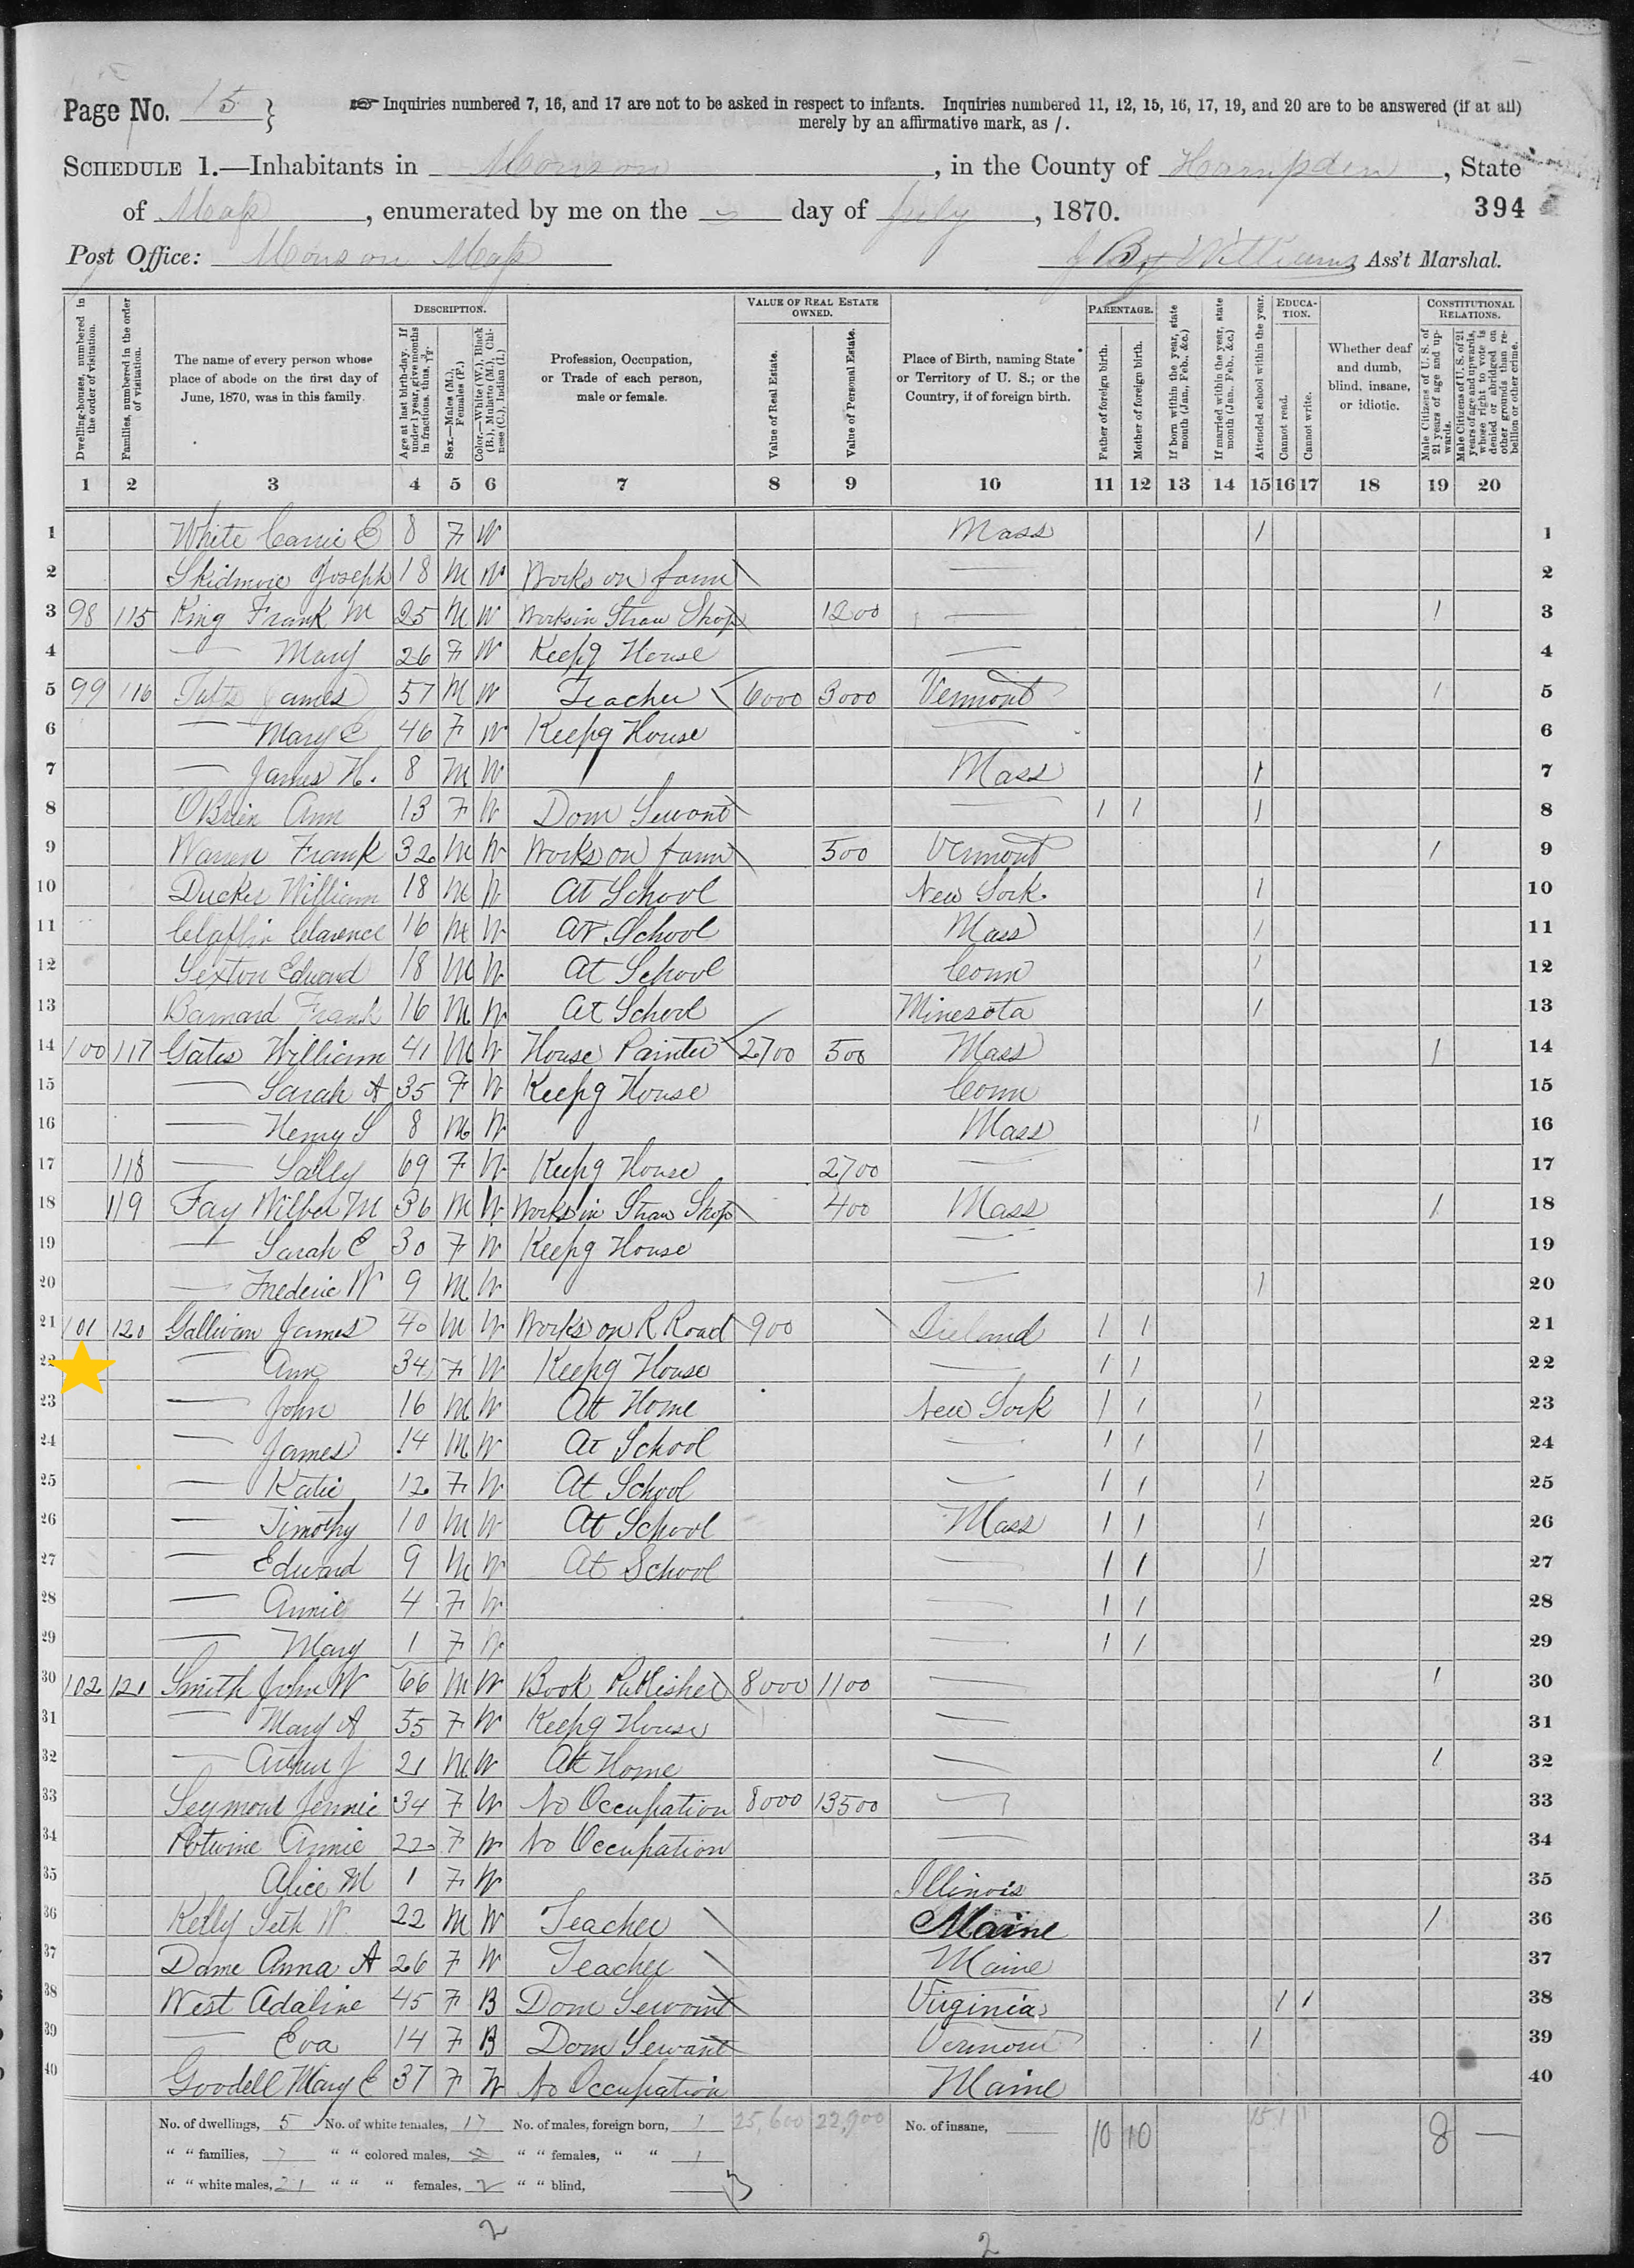 Page No. 15 } ☞ Inquiries numbered 7, 16, and 17 are not to be asked in respect to infants. Inquiries numbered 11, 12, 15, 16, 17, 19, and 20 are to be answered (if at all)
merely by an affirmative mark, as /.
SCHEDULE 1.—Inhabitants in Monson, in the County of Hampden, State
of Mass, enumerated by me on the day of July, 1870. 394
Post Office: Monson Mass Williams, Ass't Marshal.
DESCRIPTION. VALUE OF REAL ESTATE OWNED. PARENTAGE. EDUCATION. CONSTITUTIONAL RELATIONS.
Dwelling-houses, numbered in the order of visitation.
Families, numbered in the order of visitation.
The name of every person whose place of abode on the first day of June, 1870, was in this family.
Age at last birth-day. If under 1 year, give months in fractions, thus, 3/12.
Sex.—Males (M.), Females (F.)
Color.—White (W.), Black (B.), Mulatto (M.), Chinese (C.), Indian (I.)
Profession, Occupation, or Trade of each person, male or female.
Value of Real Estate.
Value of Personal Estate.
Place of Birth, naming State or Territory of U. S.; or the Country, if of foreign birth.
Father of foreign birth.
Mother of foreign birth.
If born within the year, state month (Jan., Feb., &c.)
If married within the year, state month (Jan., Feb., &c.)
Attended school within the year.
Cannot read.
Cannot write.
Whether deaf and dumb, blind, insane, or idiotic.
Male Citizens of U. S. of 21 years of age and upwards.
Male Citizens of U. S. of 21 years of age and upwards, whose right to vote is denied or abridged on other grounds than rebellion or other crime.
1 2 3 4 5 6 7 8 9 10 11 12 13 14 15 16 17 18 19 20
1 White Carrie E 8 F W Mass 1 1
2 Skidmore Joseph 18 M W Works on farm — 2
3 98 115 King Frank M 25 M W Works in Straw Shop 1200 — 1 3
4 — Mary 26 F W Keepg House — 4
5 99 116 Tufts James 57 M W Teacher 6000 3000 Vermont 1 5
6 — Mary E 46 F W Keepg House — 6
7 — James H. 8 M W Mass 1 7
8 OBrien Ann 13 F W Dom Servant — 1 1 1 8
9 Warren Frank 32 M W Works on farm 500 Vermont 1 9
10 William 18 M W At School New York 1 10
11 Claflin Clarence 16 M W At School Mass 1 11
12 Sexton Edward 18 M W At School Conn 1 12
13 Barnard Frank 16 M W At School Minesota 1 13
14 100 117 Gates William 41 M W House Painter 2700 500 Mass 1 14
15 — Sarah A 35 F W Keepg House Conn 15
16 — Henry S 8 M W Mass 1 16
17 118 — Salley 69 F W Keepg House 2700 — 17
18 119 Fay Wilber M 36 M W Works in Straw Shop 400 Mass 1 18
19 — Sarah E 30 F W Keepg House — 19
20 — Frederic W 9 M W — 1 20
21 101 120 Gallivan James 40 M W Works on R Road 900 Ireland 1 1 21
22 — Ann 34 F W Keepg House — 1 1 22
23 — John 16 M W At Home New York 1 1 1 23
24 — James 14 M W At School — 1 1 1 24
25 — Katie 12 F W At School — 1 1 1 25
26 — Timothy 10 M W At School Mass 1 1 1 26
27 — Edward 9 M W At School — 1 1 1 27
28 — Annie 4 F W — 1 1 28
29 — Mary 1 F W — 1 1 29
30 102 121 Smith John W 66 M W Book Publisher 8000 1100 — 1 30
31 — Mary A 55 F W Keepg House — 31
32 — Arthur J 21 M W At Home — 1 32
33 Seymour Jennie 34 F W No Occupation 8000 13500 — 33
34 Potwine Annie 22 F W No Occupation — 34
35 Alice M 1 F W Illinois 35
36 Kelly Seth W 22 M W Teacher Maine 1 36
37 Dame Anna A 26 F W Teacher Maine 37
38 West Adaline 45 F B Dom Servant Virginia 1 1 38
39 — Eva 14 F B Dom Servant Vermont 1 39
40 Goodell Mary E 37 F W No Occupation Maine 40
No. of dwellings, 5 No. of white females, 17 No. of males, foreign born, 1 25,600 22,900 No. of insane, — 10 10 15 1 1 8 —
" " families, 7 " " colored males, " " females, " " 1
" " white males, 21 " " " females, 2 " " blind, — 3
2 2